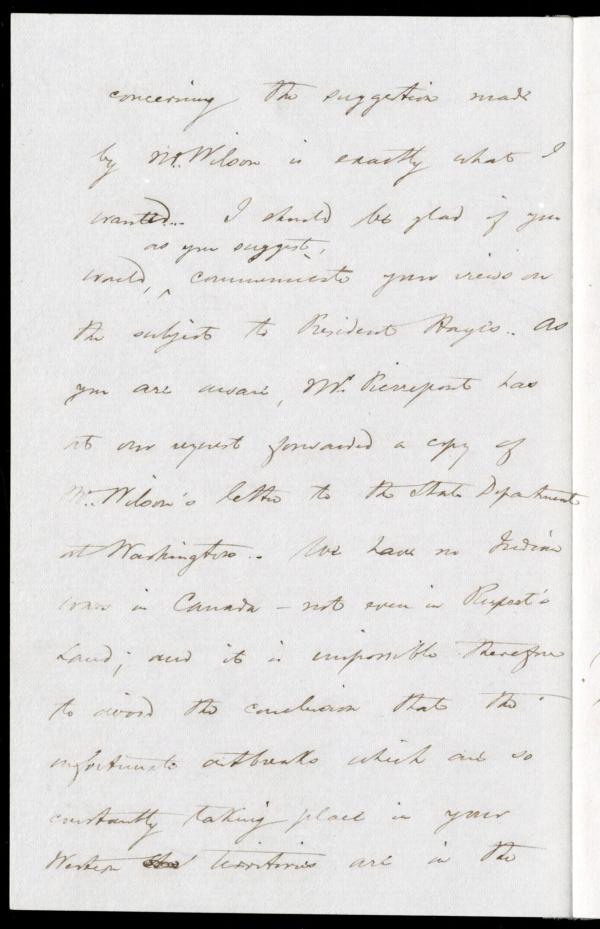 concerning the suggestion made
by Mr. Wilson is exactly what I
wanted. I should be glad if you
as you suggest,
would, ^ communicate your views on
the subject to President Hayes. As
you are aware, Mr. Pierrepont has
at our request forwarded a copy of
Mr. Wilson's letter to the State Department
at Washington. We have no Indian
wars in Canada - not even in Rupert's
Land; and it is impossible therefore
to avoid the conclusion that the
unfortunate outbreaks which are so
constantly taking place in your
Western territories are in the